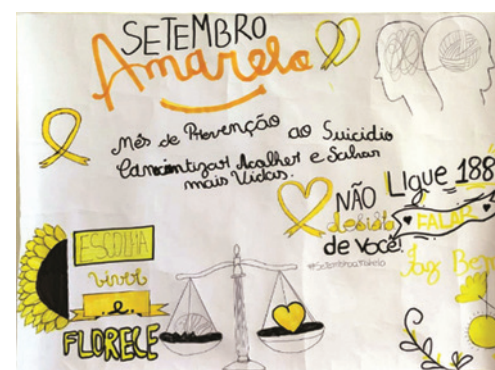 SETEMBRO
Amarelo
Mês de Prevenção ao Suicídio
Conscientizar Acolher e Salvar
mais Vidas.
NÃO
desista
de Você!
#Setembroamarelo
Ligue 188
FALAR
Faz Bem
ESCOLHA
viver
e
FLORECE